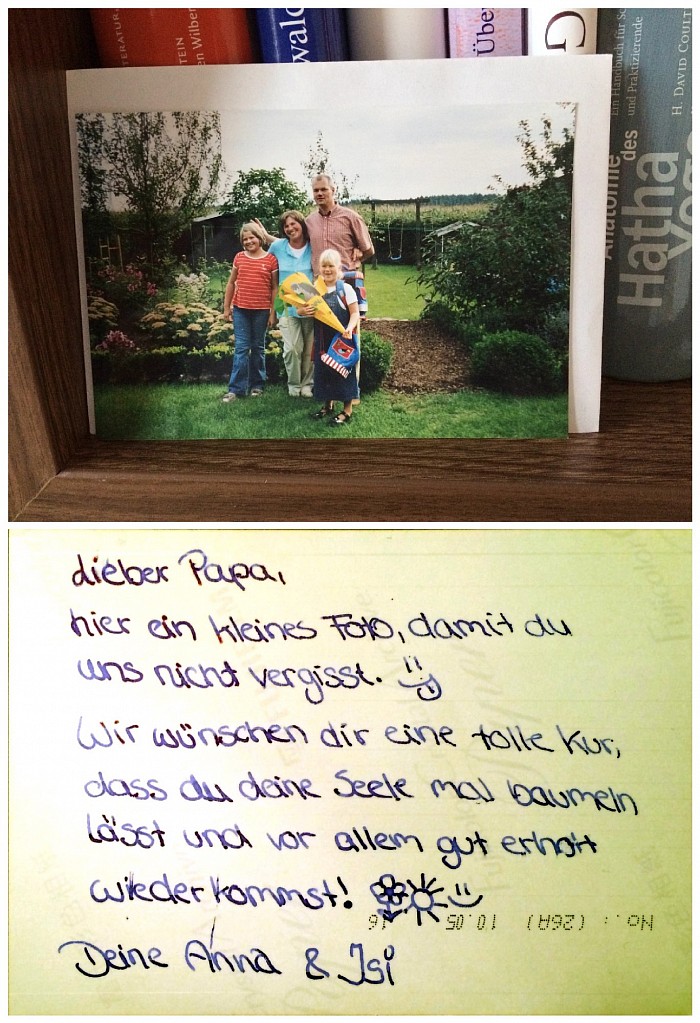 TEIN
en Wilber
wald
Übe
G
Ein Handbuch für Sc
und Praktizierende
H. DAVID COULT
Anatomie des
Hatha
Yoga
Lieber Papa,
hier ein kleines Foto, damit du
uns nicht vergisst.
Wir wünschen dir eine tolle Kur,
dass du deine Seele mal baumeln
lässt und vor allem gut erholt
wiederkommst!
No.: (26A) 10.05
Deine Anna & Isi